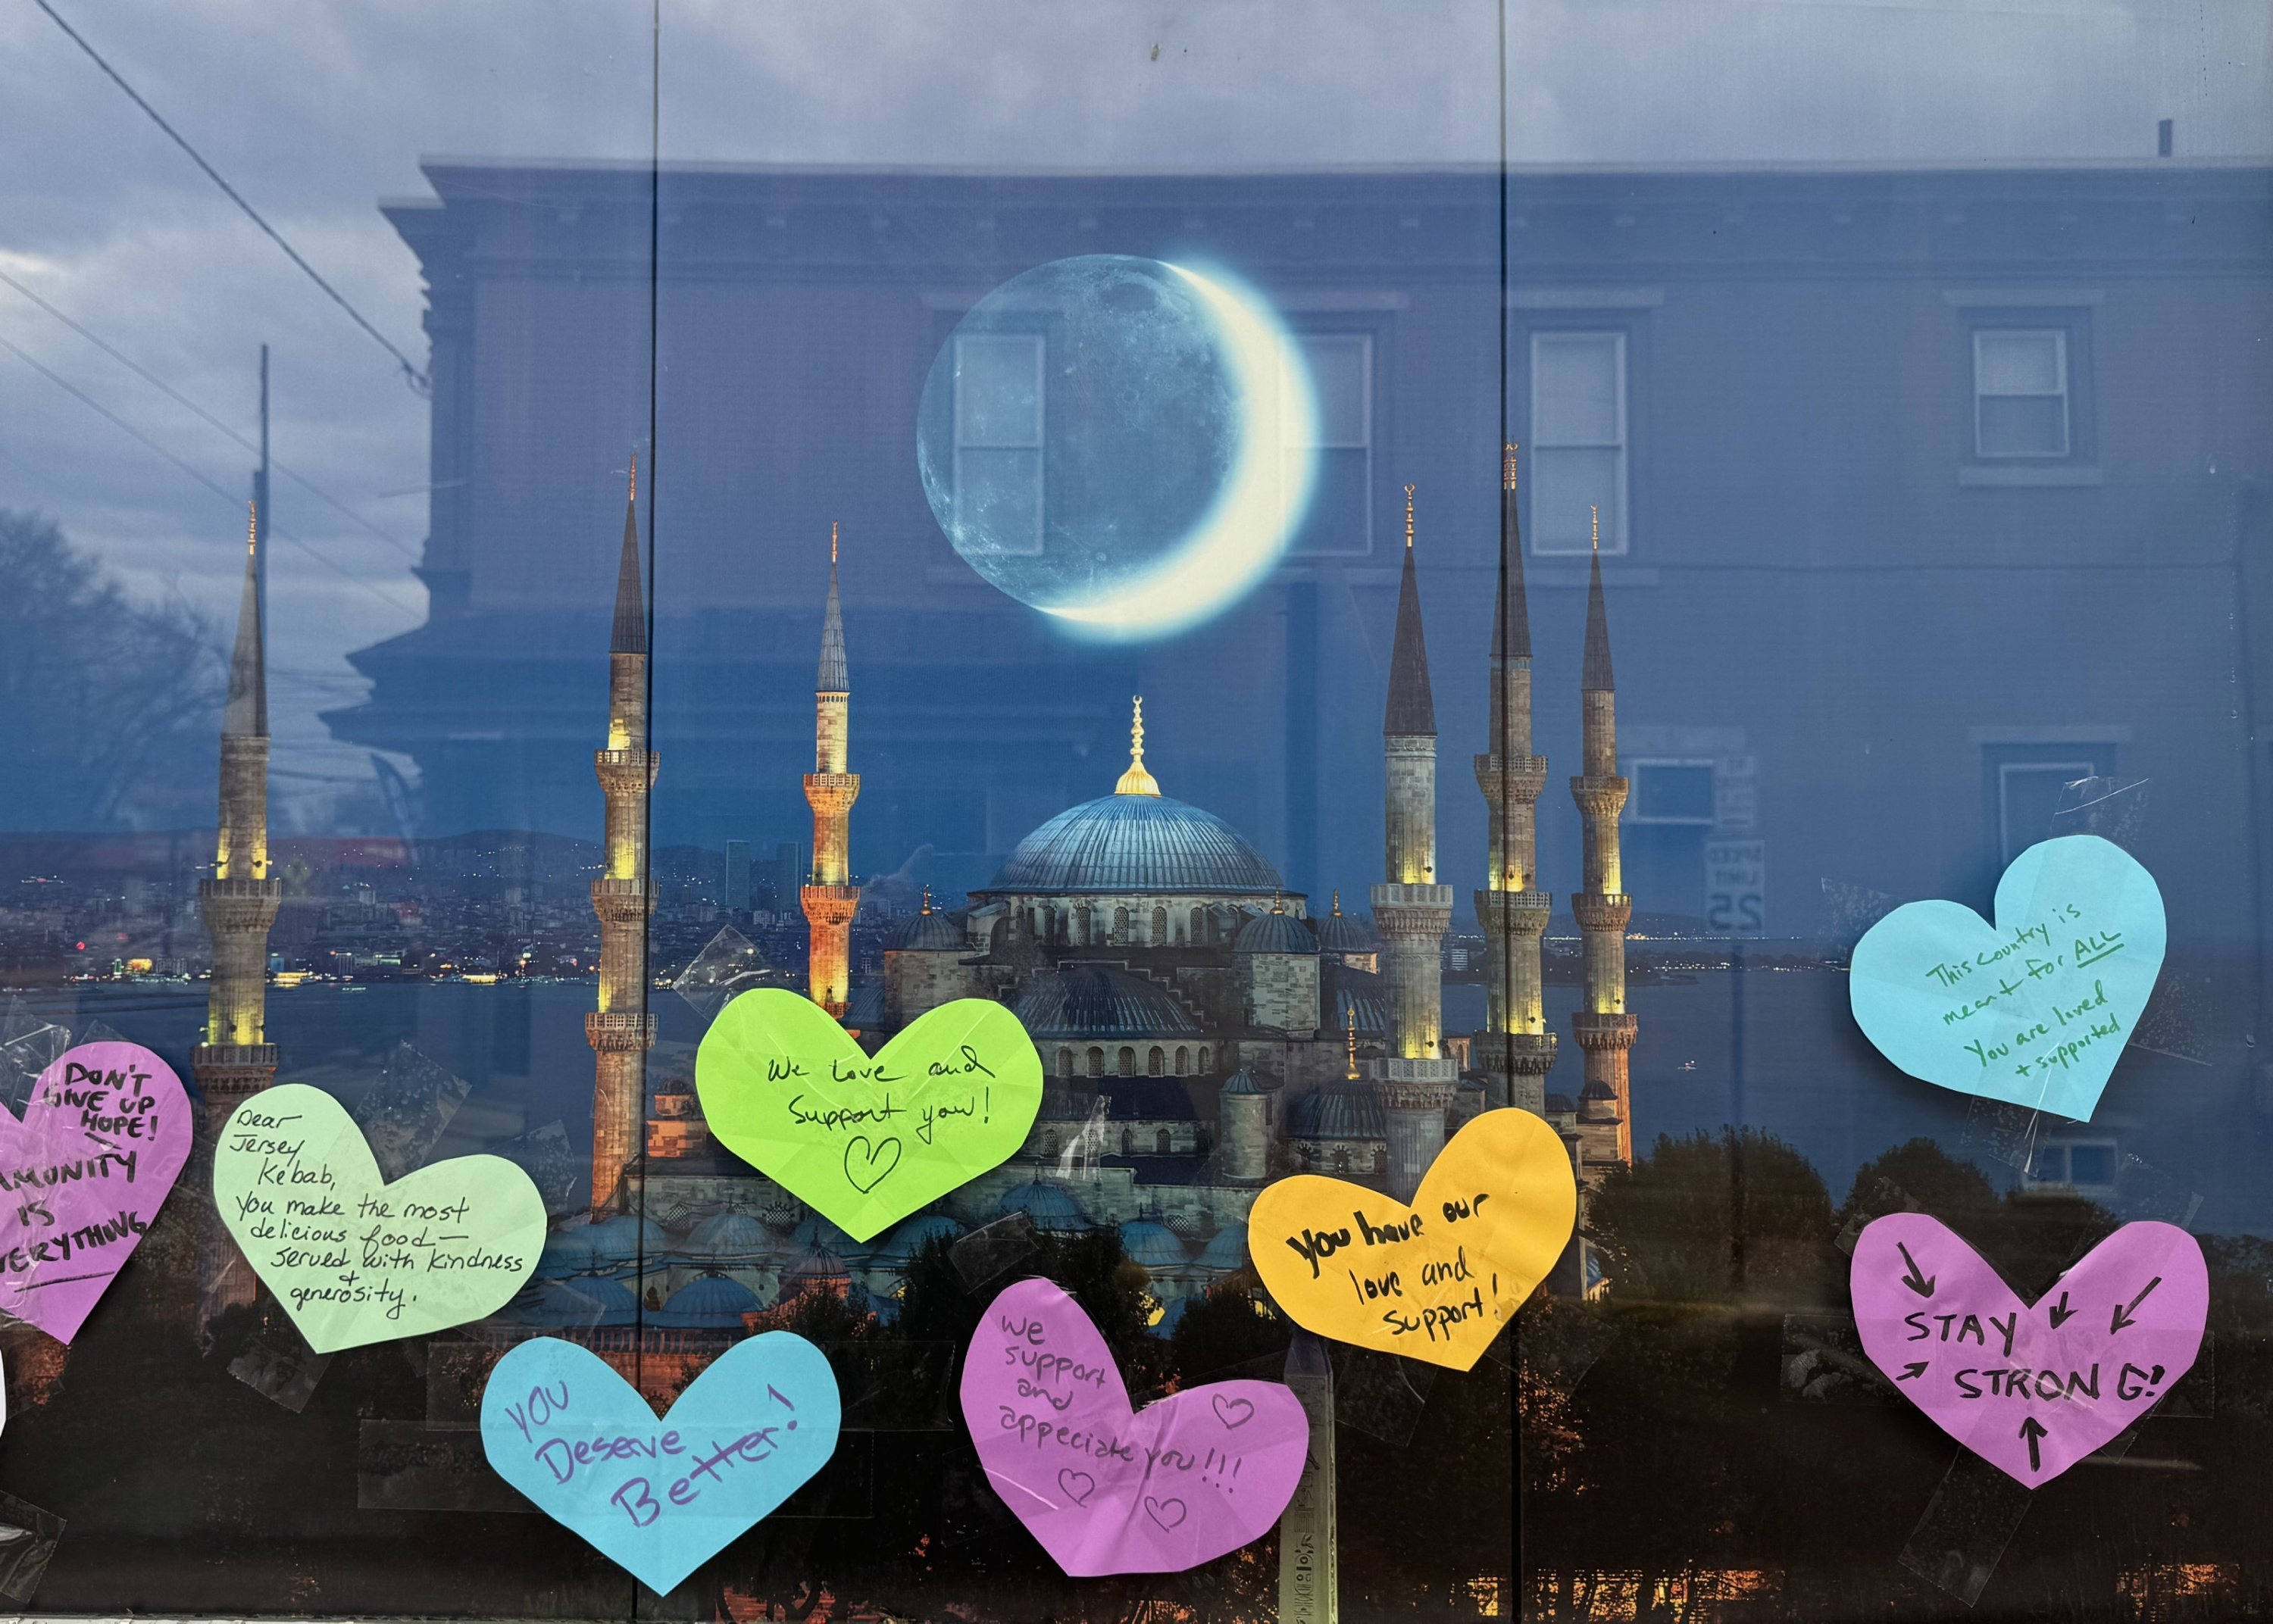 DON'T
GIVE UP
HOPE!
MMUNITY
IS
VERYTHING
Dear
Jersey
Kebab,
You make the most
delicious food—
served with kindness
+
generosity.
You
Deserve
Better!
We Love and
Support you!
We
support
and
appeciate you!!!
You have our
love and
support!
This country is
meant for ALL
You are loved
+ supported
STAY
STRONG!
SPEED
LIMIT
25